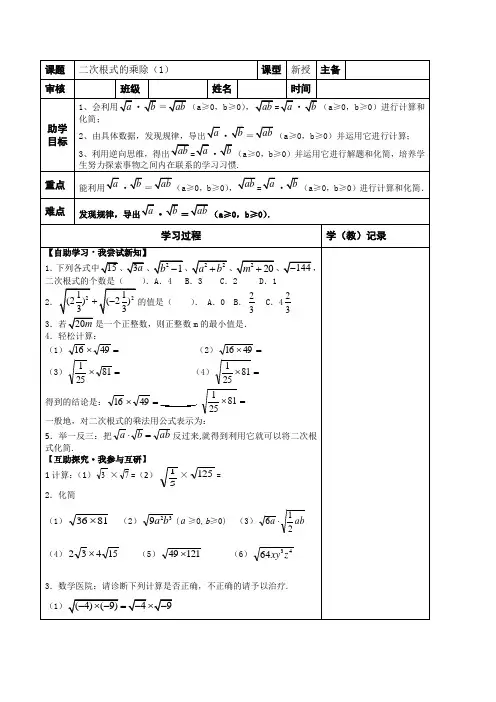 课题 二次根式的乘除（1） 课型 新授 主备
审核 班级 姓名 时间
助学目标
1、会利用√a·√b＝√ab（a≥0，b≥0），√ab=√a·√b（a≥0，b≥0）进行计算和
化简；
2、由具体数据，发现规律，导出√a·√b＝√ab（a≥0，b≥0）并运用它进行计算；
3、利用逆向思维，得出√ab=√a·√b（a≥0，b≥0）并运用它进行解题和化简，培养学
生努力探索事物之间内在联系的学习习惯.
重点 能利用√a·√b＝√ab（a≥0，b≥0），√ab=√a·√b（a≥0，b≥0）进行计算和化简．
难点 发现规律，导出√a·√b＝√ab（a≥0，b≥0）．
学习过程 学（教）记录
【自助学习·我尝试新知】
1．下列各式中√15、√3a、√(b²−1)、√(a²+b²)、√(m²+20)、√−144，
二次根式的个数是（ ）．A．4 B．3 C．2 D．1
2．√(2 1/3)²+√(−2 1/3)² 的值是（ ）． A．0 B．2/3 C．4 2/3
3．若√20m是一个正整数，则正整数m的最小值是．
4．轻松计算：
（1）√16×√49＝ （2）√16×49＝
（3）√(1/25)×√81＝ （4）√(1/25×81)＝
得到的结论是：√16×√49＝_ _，√(1/25)×√81＝
一般地，对二次根式的乘法公式表示为：
5．举一反三：把√a·√b＝√ab反过来，就得到利用它就可以将二次根
式化简．
【互助探究·我参与互研】
1计算：（1）√3×√7=（2）√(1/5)×√125=
2．化简
（1）√36×81 （2）√9a²b³（a≥0，b≥0） （3）√6a·√(1/2 ab)
（4）2√3×4√15 （5）√49×121 （6）√64xy³z⁴
3．数学医院：请诊断下列计算是否正确，不正确的请予以治疗．
（1）√(−4)×(−9)=√−4×√−9